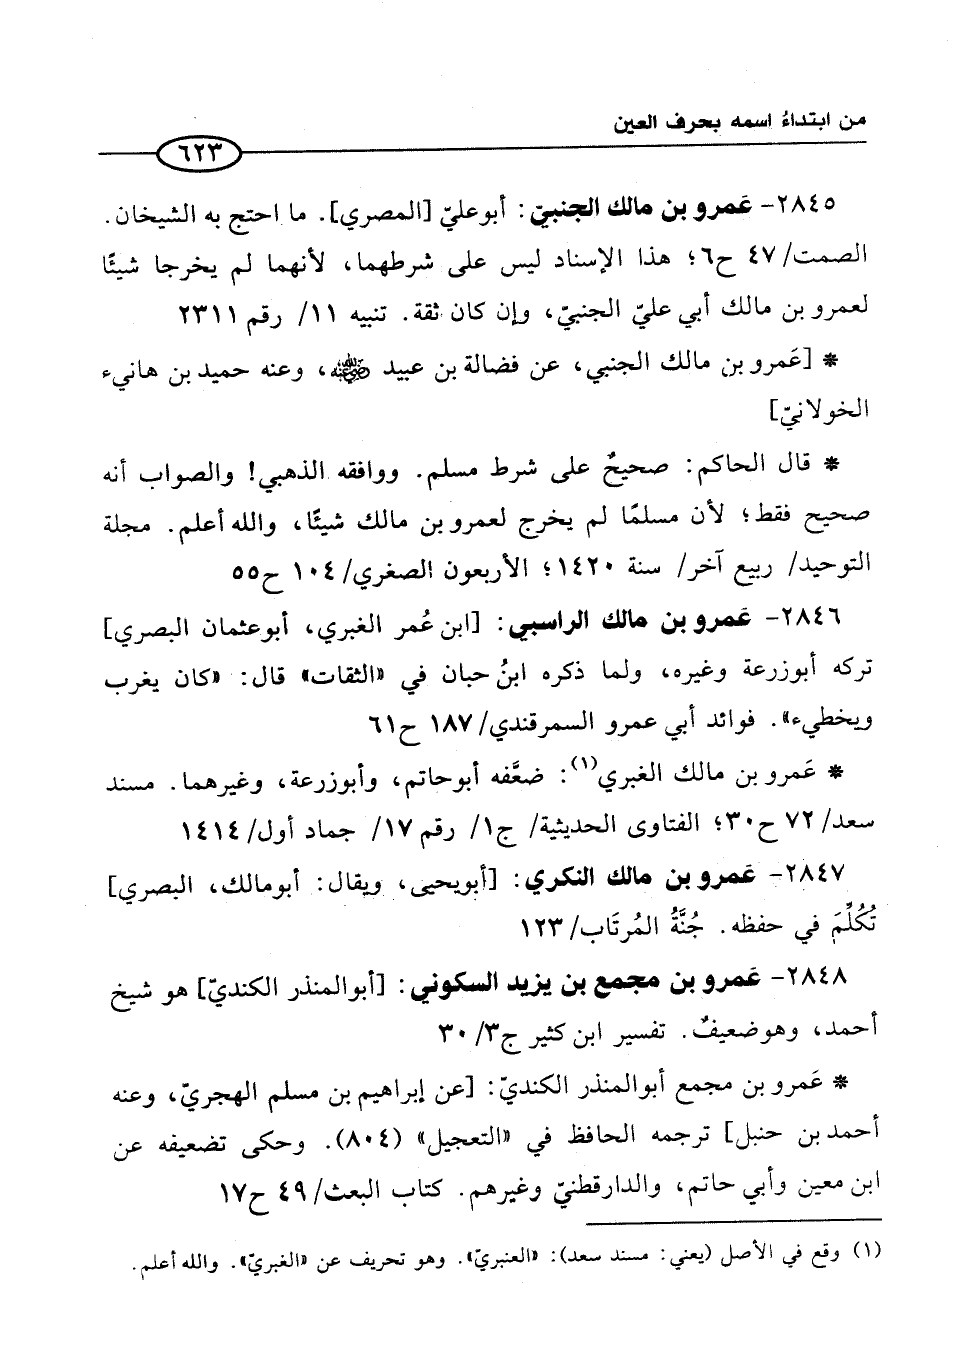 من ابتداءُ اسمه بحرف العين
٦٢٣
٢٨٤٥- عَمرو بن مالك الجنبيّ: أبوعليّ [المصري]. ما احتج به الشيخان.
الصمت/ ٤٧ ح٦؛ هذا الإسناد ليس على شرطهما، لأنهما لم يخرجا شيئًا
لعمرو بن مالك أبي عليّ الجنبيّ، وإن كان ثقة. تنبيه ١١/ رقم ٢٣١١
* [عَمرو بن مالك الجنبي، عن فضالة بن عبيد ﵁، وعنه حميد بن هانيء
الخولانيّ]
* قال الحاكم: صحيحٌ على شرط مسلم. ووافقه الذهبي! والصواب أنه
صحيح فقط؛ لأن مسلمًا لم يخرج لعمرو بن مالك شيئًا، والله أعلم. مجلة
التوحيد/ ربيع آخر/ سنة ١٤٢٠؛ الأربعون الصغري/ ١٠٤ ح٥٥
٢٨٤٦- عَمرو بن مالك الراسبي: [ابن عُمر الغبري، أبوعثمان البصري]
تركه أبوزرعة وغيره، ولما ذكره ابنُ حبان في «الثقات» قال: «كان يغرب
ويخطيء». فوائد أبي عمرو السمرقندي/ ١٨٧ ح٦١
* عَمرو بن مالك الغبري(١): ضعَّفه أبوحاتم، وأبوزرعة، وغيرهما. مسند
سعد/ ٧٢ ح٣٠؛ الفتاوى الحديثية/ ج١/ رقم ١٧/ جماد أول/ ١٤١٤
٢٨٤٧- عَمرو بن مالك النكري: [أبويحيى، ويقال: أبومالك، البصري]
تُكُلِّمَ في حفظه. جُنَّةُ المُرتَاب/ ١٢٣
٢٨٤٨- عَمرو بن مجمع بن يزيد السكوني: [أبوالمنذر الكنديّ] هو شيخ
أحمد، وهوضعيفٌ. تفسير ابن كثير ج٣/ ٣٠
* عَمرو بن مجمع أبوالمنذر الكنديّ: [عن إبراهيم بن مسلم الهجريّ، وعنه
أحمد بن حنبل] ترجمه الحافظ في «التعجيل» (٨٠٤). وحكى تضعيفه عن
ابن معين وأبي حاتم، والدارقطنيّ وغيرهم. كتاب البعث/ ٤٩ ح١٧
(١) وقع في الأصل (يعني: مسند سعد): «العنبريّ». وهو تحريف عن «الغبريّ». والله أعلم.